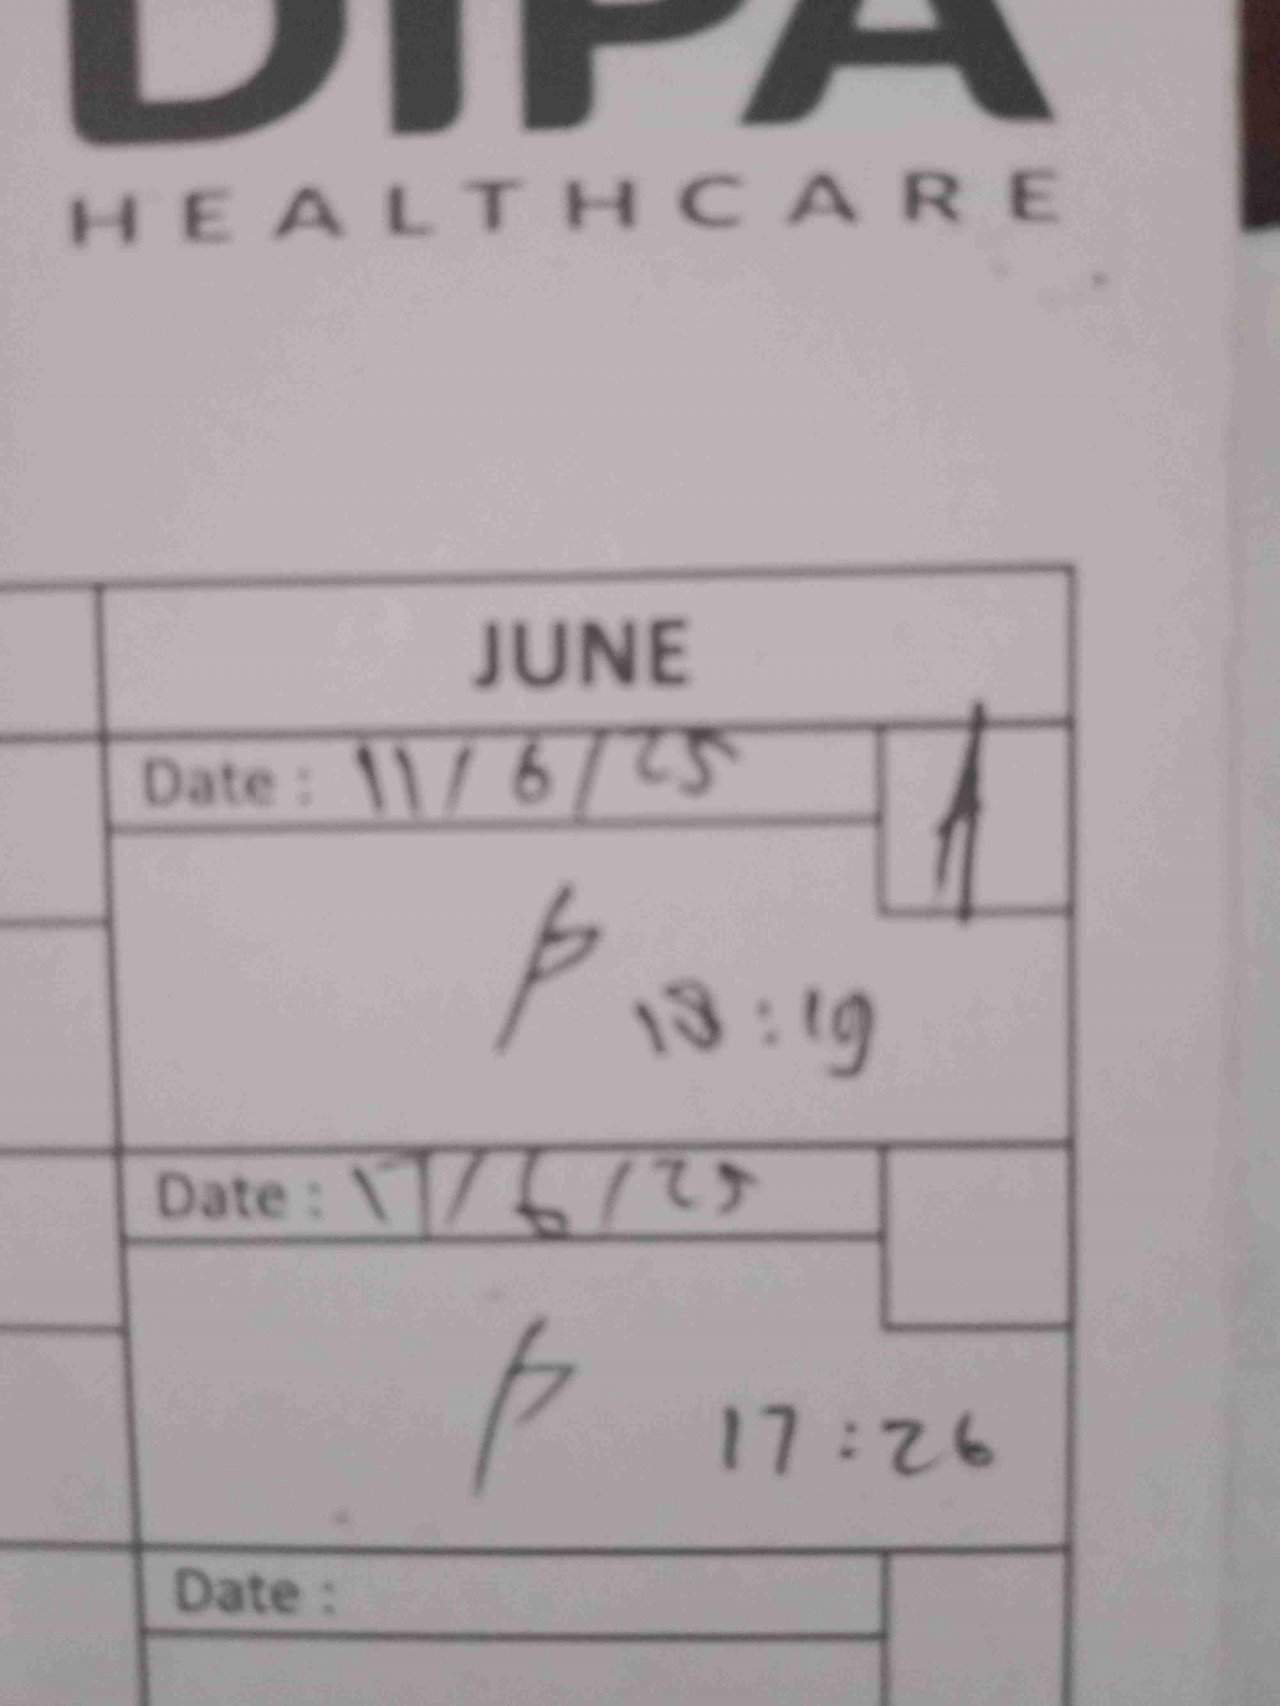 DIPA
HEALTHCARE
JUNE
Date : 11/6/25
18:19
Date : 17/6/25
17:26
Date :